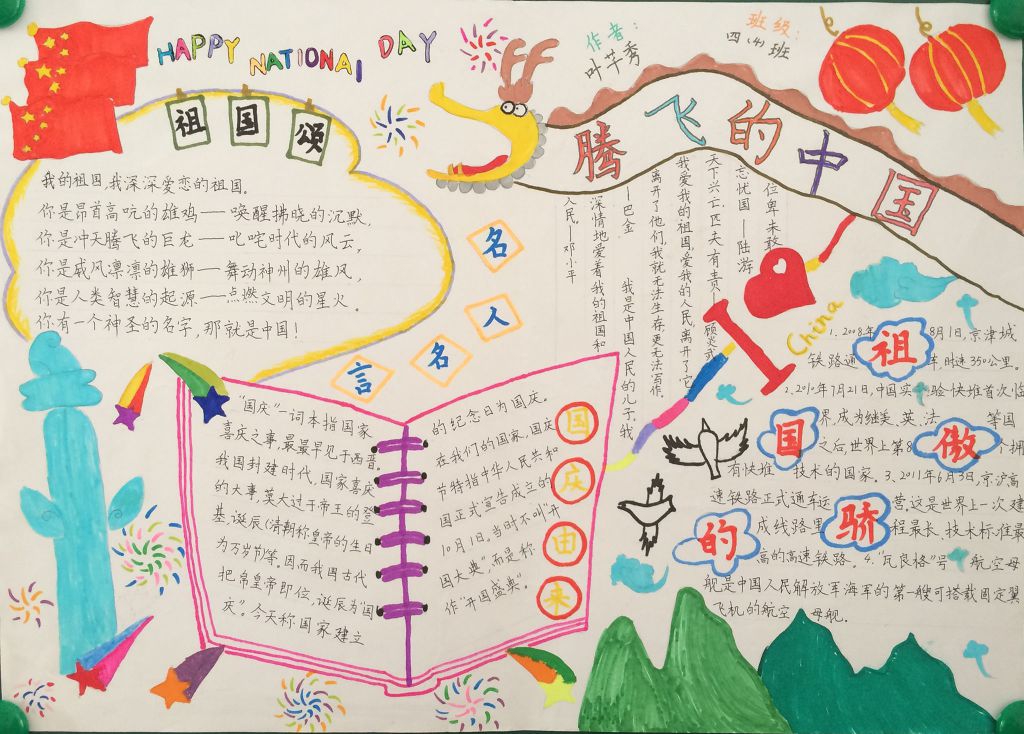 HAPPY NATIONAL DAY
作者:
叶芊秀
班级:
四(4)班
腾飞的中国
祖国颂
我的祖国,我深深爱恋的祖国。
你是昂首高吭的雄鸡——唤醒拂晓的沉默,
你是冲天腾飞的巨龙——叱咤时代的风云,
你是威风凛凛的雄狮——舞动神州的雄风,
你是人类智慧的起源——点燃文明的星火。
你有一个神圣的名字,那就是中国!
名人名言
位卑未敢
忘忧国——陆游
天下兴亡,匹夫有责——顾炎武
我爱我的祖国,爱我的人民,离开了它,
离开了他们,我就无法生存,更无法写作。
——巴金
我是中国人民的儿子,我
深情地爱着我的祖国和
人民。——邓小平
I
China
国庆由来
“国庆”一词本指国家
喜庆之事,最最早见于西晋。
我国封建时代,国家喜庆
的大事,莫大过于帝王的登
基、诞辰(清朝称皇帝的生日
为万岁节)等。因而我国古代
把帝皇帝即位、诞辰为“国
庆”。今天称国家建立
的纪念日为国庆。
在我们的国家,国庆
节特指中华人民共和
国正式宣告成立的
10月1日,当时不叫开
国大典”,而是称
作“开国盛典”。
祖国的骄傲
1.2008年8月1日,京津城
铁路通车,时速350公里。
2.2010年7月21日,中国实验快堆首次临
界,成为继美、英、法等国
之后,世界上第8个拥
有快堆技术的国家。3.2011年6月3日,京沪高
速铁路正式通车运营,这是世界上一次建
成线路里程最长、技术标准最
高的高速铁路。4.“瓦良格”号航空母
舰是中国人民解放军海军的第一艘可搭载固定翼
飞机的航空母舰。